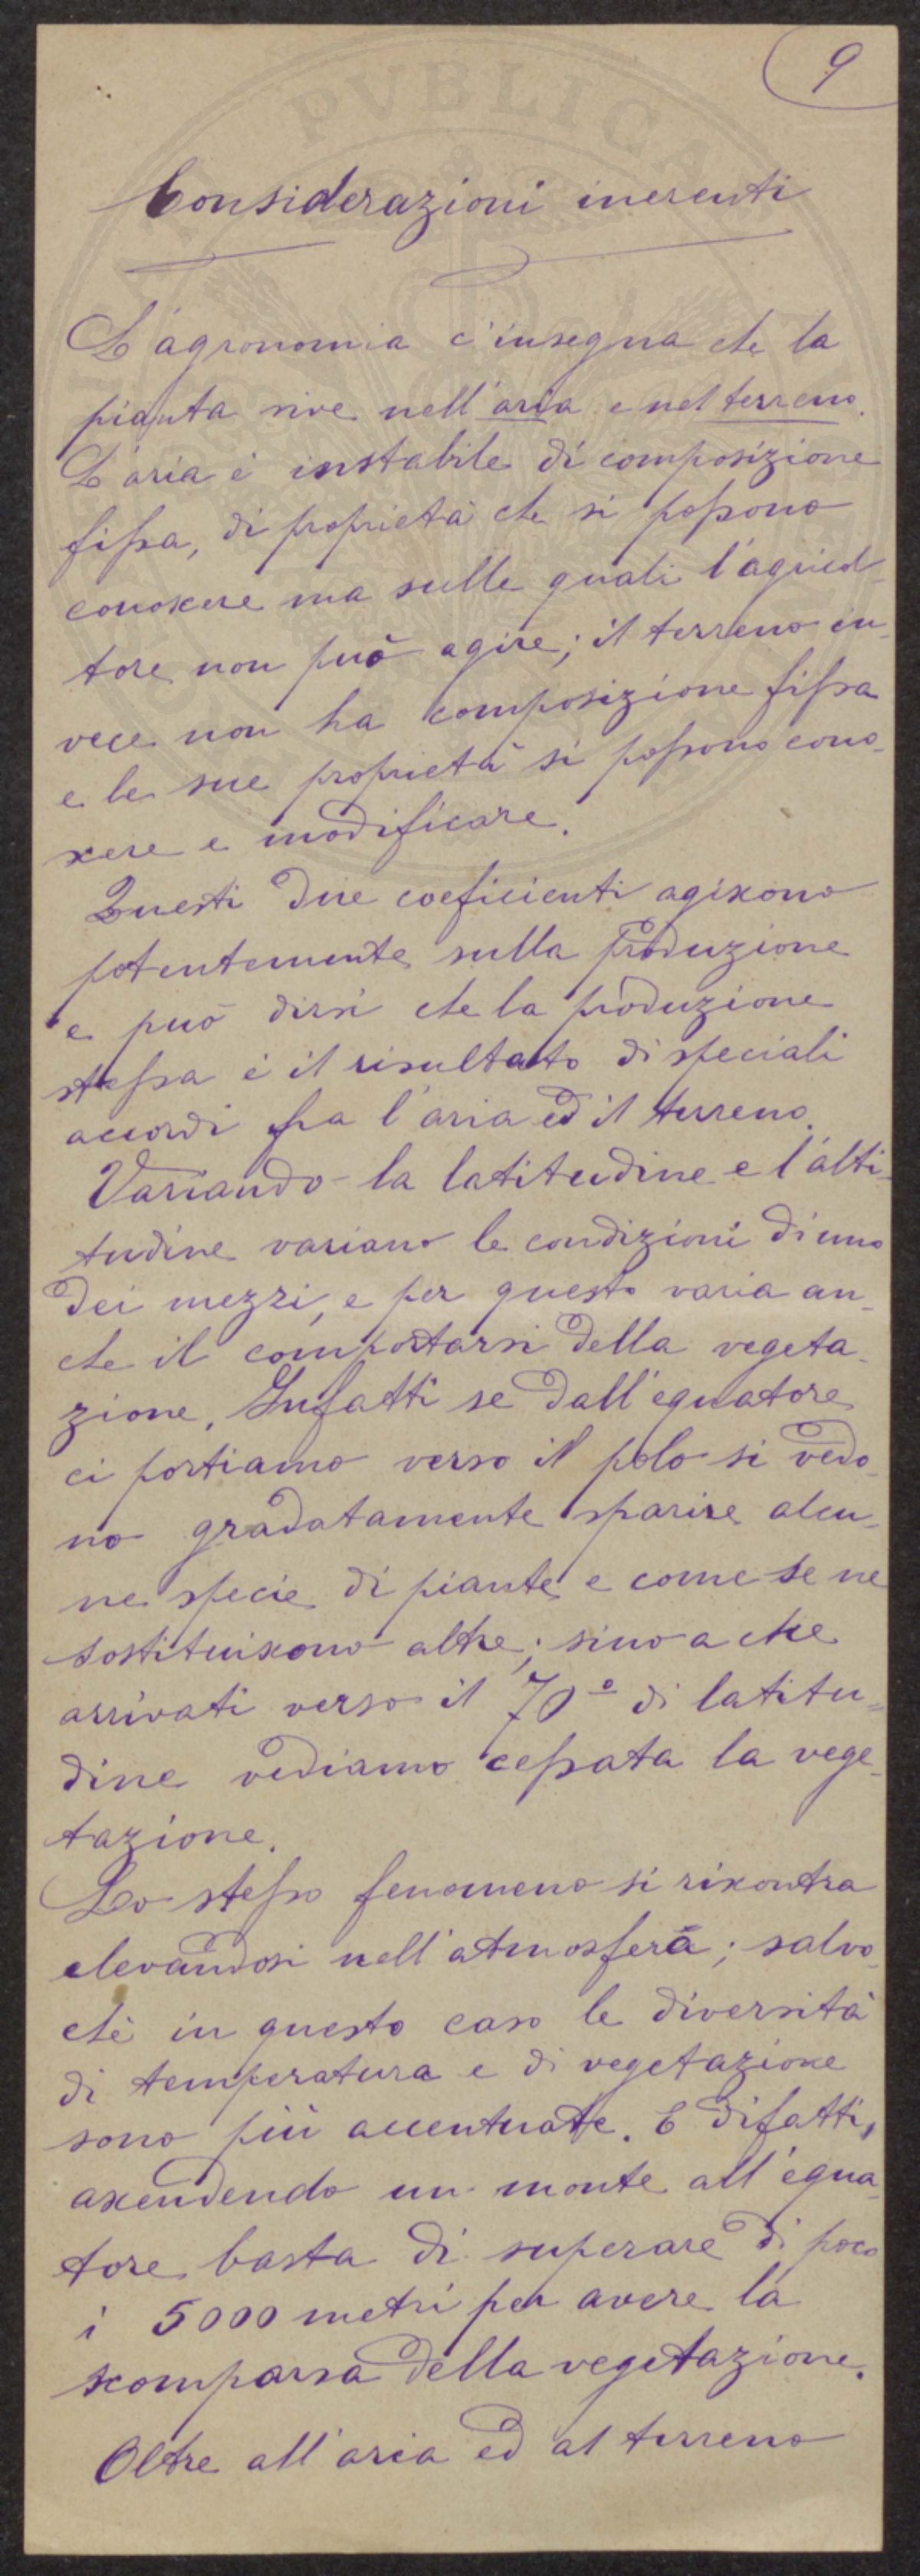 9
PVBLICA
Considerazioni inerenti
L'agronomia c'insegna che la
pianta vive nell'aria e nel terreno.
L'aria è instabile di composizione
fissa, di proprietà che si possono
conoscere ma sulle quali l'agricol-
tore non può agire; il terreno in-
vece non ha composizione fissa
e le sue proprietà si possono cono-
scere e modificare.
Questi due coeficienti agiscono
potentemente sulla produzione
e può dirsi che la produzione
stessa è il risultato di speciali
accordi fra l'aria ed il terreno.
Variando la latitudine e l'alti-
tudine variano le condizioni di uno
dei mezzi, e per questo varia an-
che il comportarsi della vegeta-
zione. Infatti se dall'equatore
ci portiamo verso il polo si vedo-
no gradatamente sparire alcu-
ne specie di piante e come se ne
sostituiscono altre; sino a che
arrivati verso il 70° di latitu-
dine vediamo cessata la vege-
tazione.
Lo stesso fenomeno si riscontra
elevandosi nell'atmosfera; salvo-
chè in questo caso le diversità
di temperatura e di vegetazione
sono più accentuate. E difatti,
ascendendo un monte all'equa-
tore basta di superare di poco
i 5000 metri per avere la
scomparsa della vegetazione.
Oltre all'aria ed al terreno